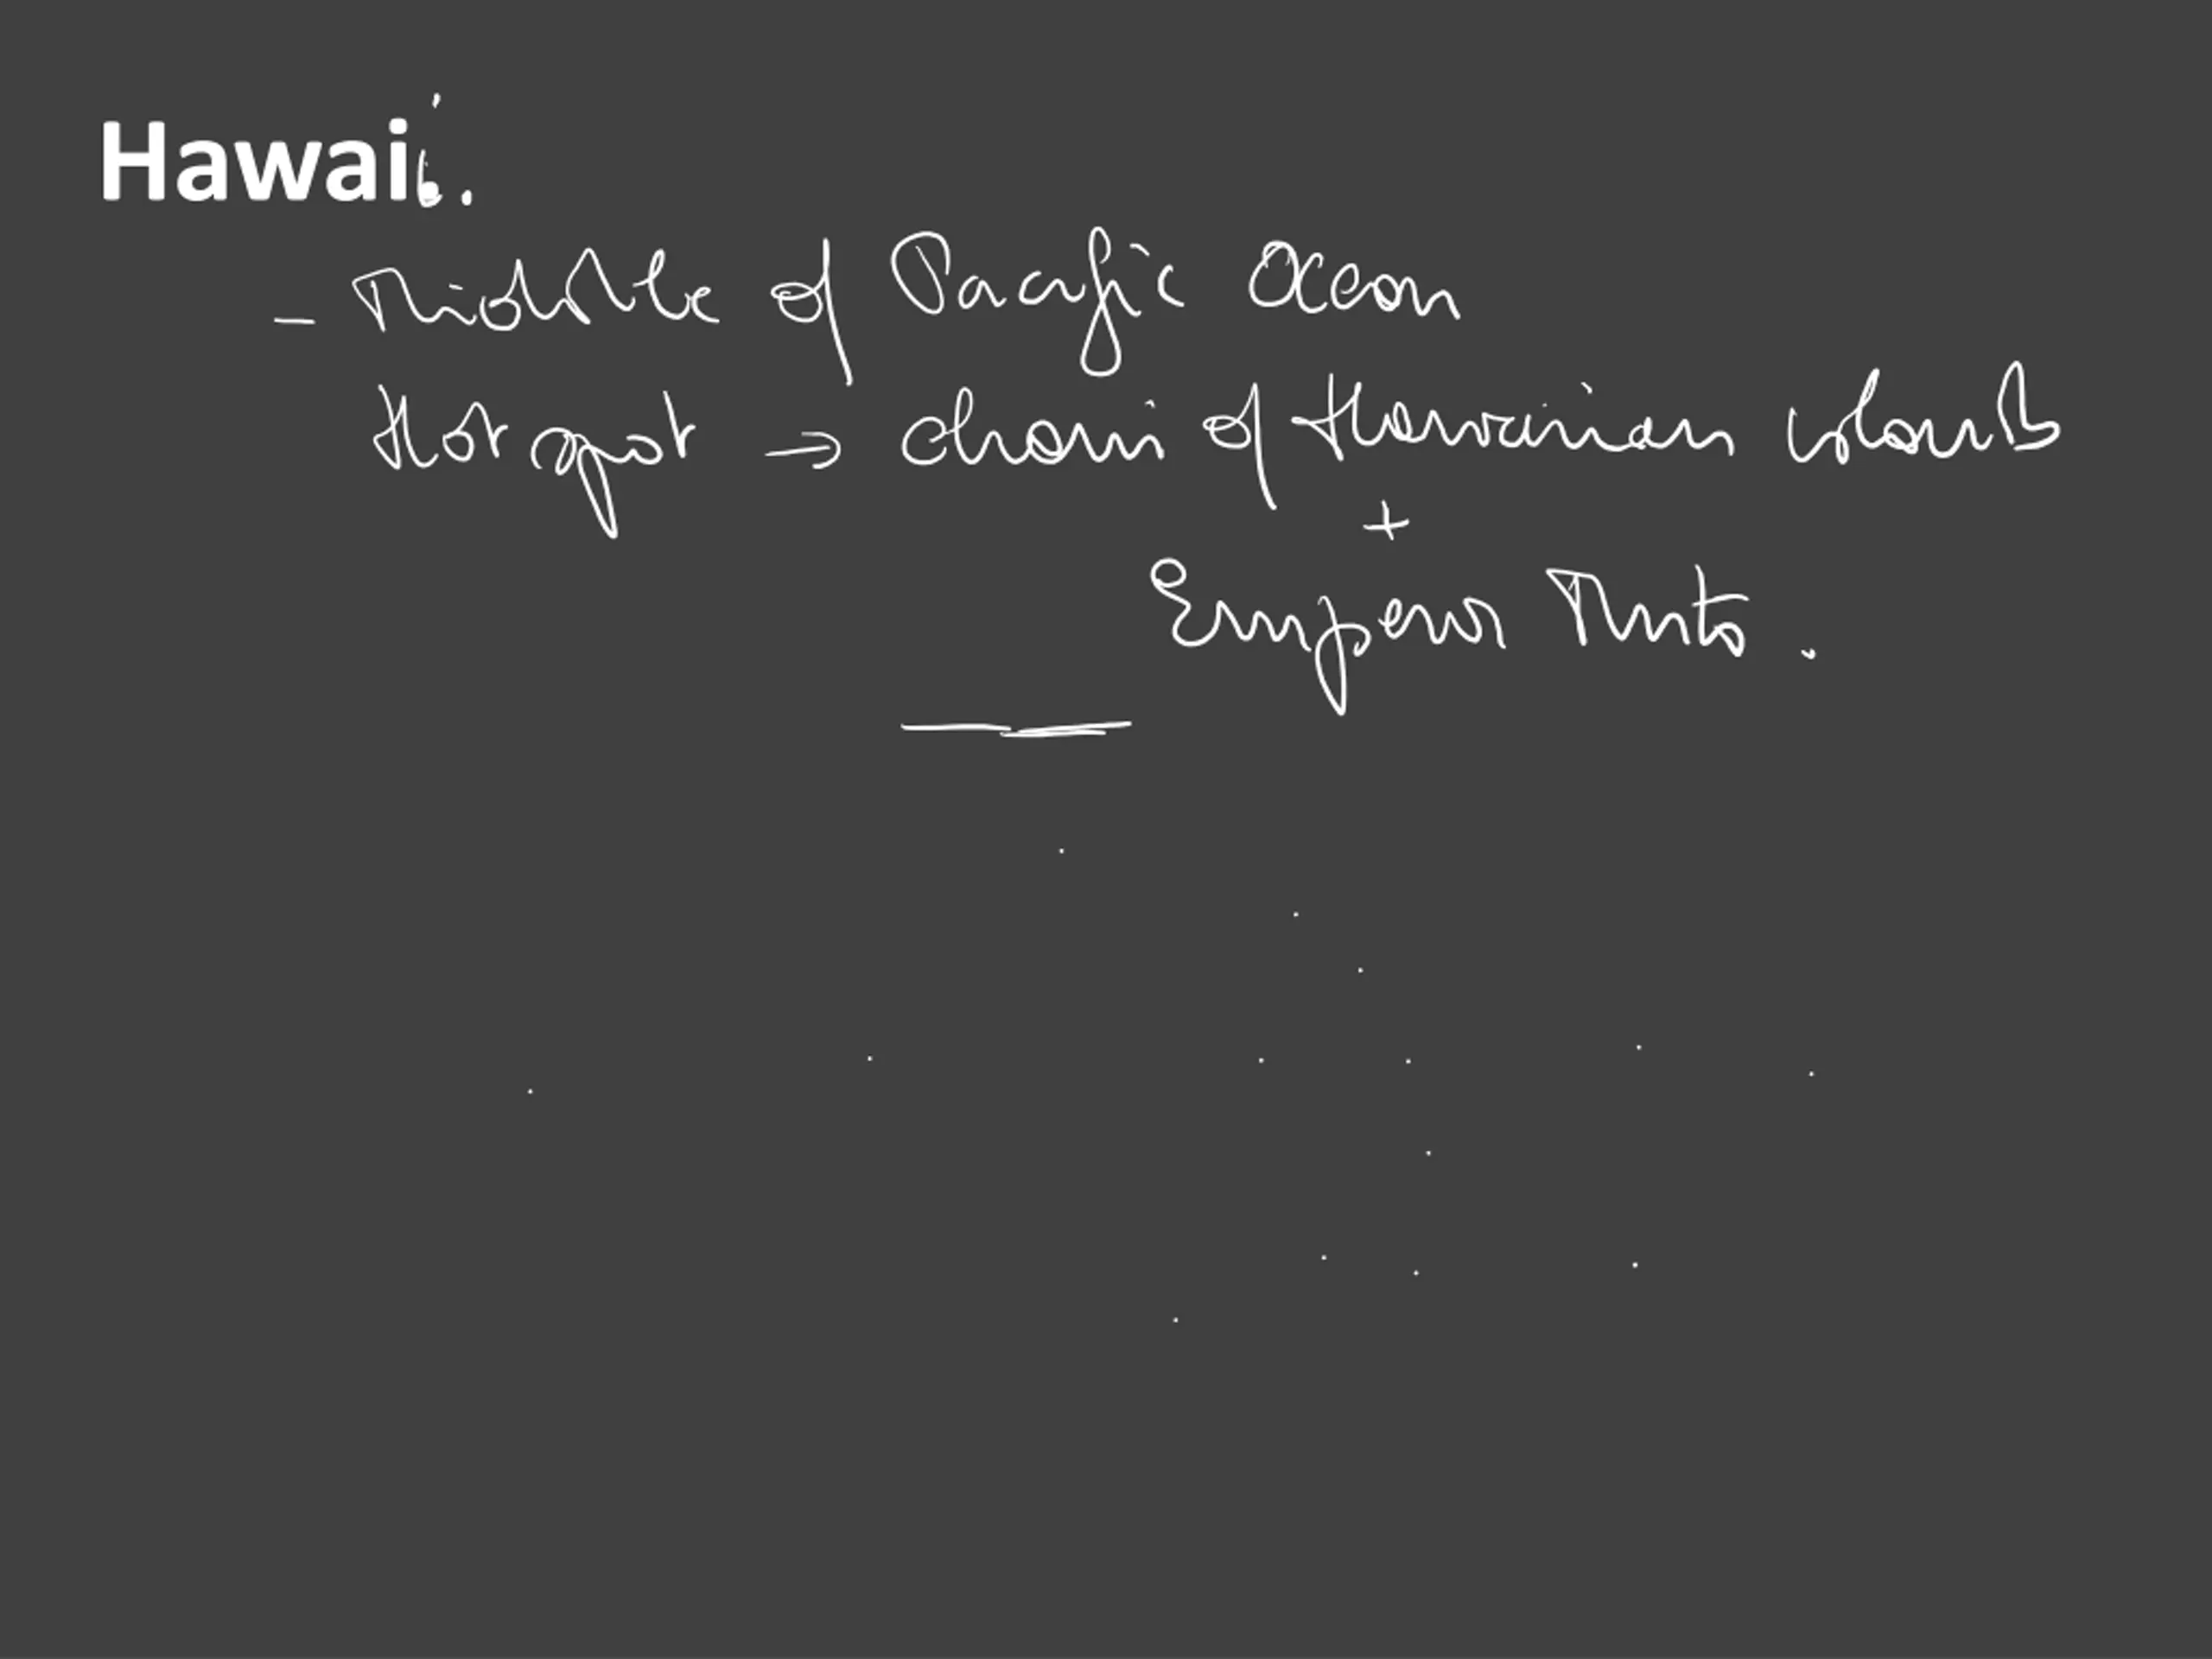 Hawaii.
- Middle of Pacific Ocean
Hot spot → chain of Hawaiian islands
+
Emperor Mnts.